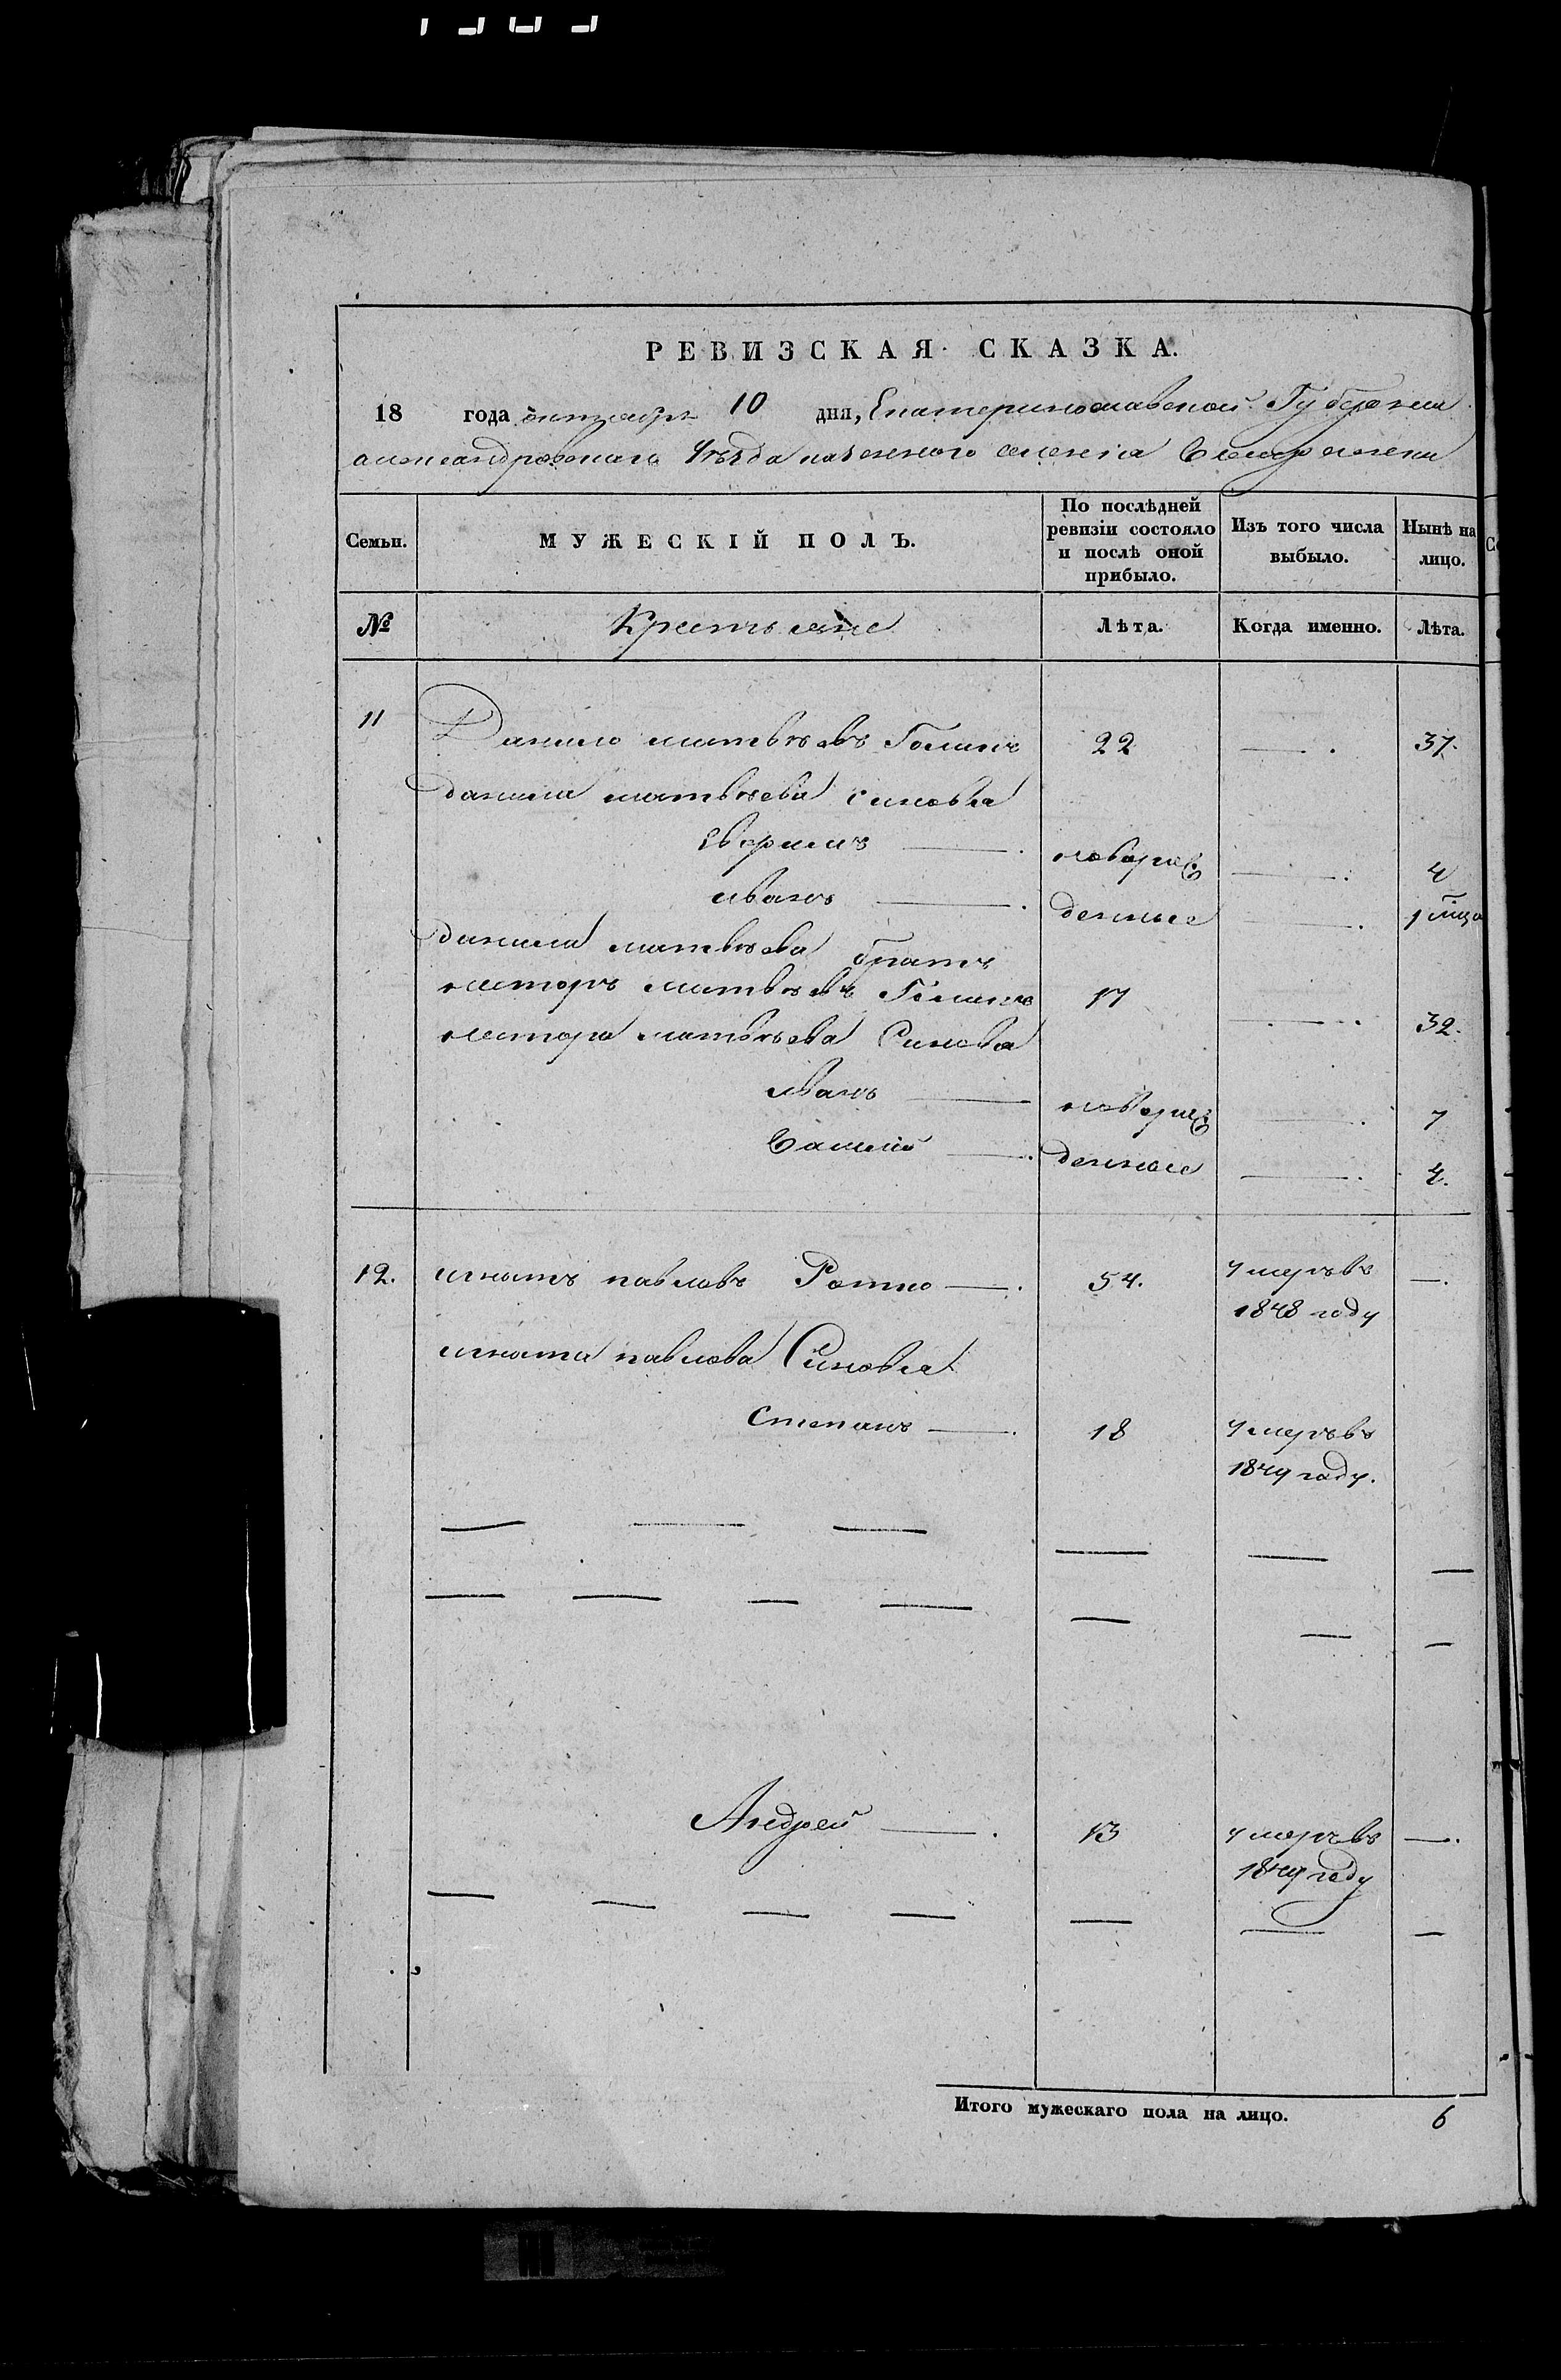 РЕВИЗСКАЯ СКАЗКА.
18 года октября 10 дня, Екатеринославской Губернии
александровскаго Уѣзда казенного селенія
Семьи. МУЖЕСКІЙ ПОЛЪ. По послѣдней ревизіи состояло и послѣ оной прибыло. Изъ того числа выбыло. Нынѣ на лицо.
№ Крестьяне Лѣта. Когда именно. Лѣта.
11 Данило матвѣевъ 22 — . 37.
данила матвѣева синовья
— . новорож — . 4
иванъ — . денные — . 1
данила матвѣева братъ
несторъ матвѣевъ 17 — . 32.
нестора матвѣева Синовья
иванъ — новорож — . 7
Василій — . денные — . 4.
12. игнатъ павловъ — . 54. умеръ въ — .
1848 году
игната павлова Синовья
Степанъ — . 18 умеръ въ
1849 году.
— — — — — —
— — — — — — —
Андрей — . 13 умеръ въ — .
1849 году
— — — — — — —
Итого мужескаго пола на лицо. 6